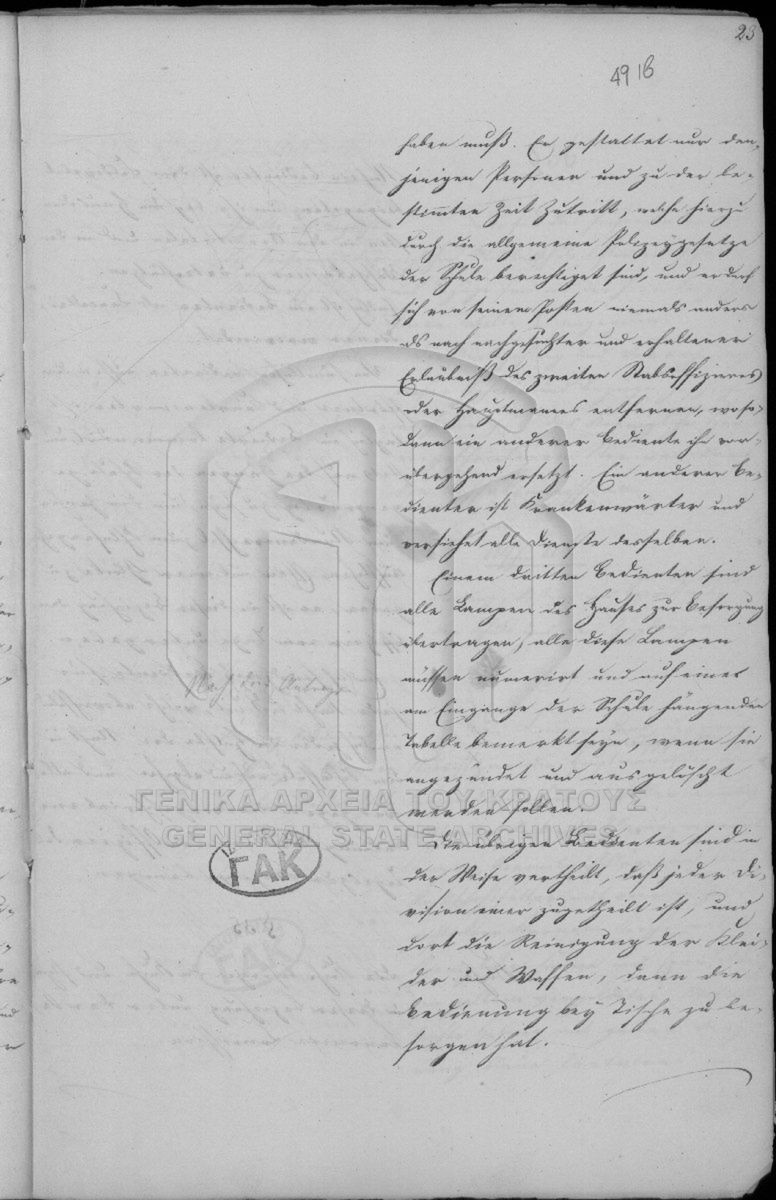 23
49 18
haben muß. Er gestattet nur den-
jenigen Personen und zu der be-
stimmten Zeit Zutritt, welche hierzu
durch die allgemeine Polizeygesetze
der Schule berechtiget sind, und er darf
sich von seinem Posten niemals anders
als nach nachgesuchter und erhaltener
Erlaubniß des zweiten Stabsoffizieres
oder Hauptmannes entfernen, woso-
dann ein anderer Bediente ihn vor-
übergehend ersetzt. Ein anderer Be-
dienter ist Krankenwärter und
versiehet alle Dienste desselben.
Einem dritten Bedienten sind
alle Lampen des Hauses zur Besorgung
übertragen, alle diese Lampen
müssen numerirt und auf einer
am Eingange der Schule hängenden
Tabelle bemerkt seyn, wenn sie
angezündet und ausgelöscht
werden sollen.
Die übrigen Bedienten sind in
der Weise vertheilt, daß jeder Di-
vision einer zugetheilt ist, und
dort die Reinigung der Klei-
der und Waffen, dann die
Bedienung bey Tische zu be-
sorgen hat.
ΓΕΝΙΚΑ ΑΡΧΕΙΑ ΤΟΥ ΚΡΑΤΟΥΣ
GENERAL STATE ARCHIVES
ΓΑΚ